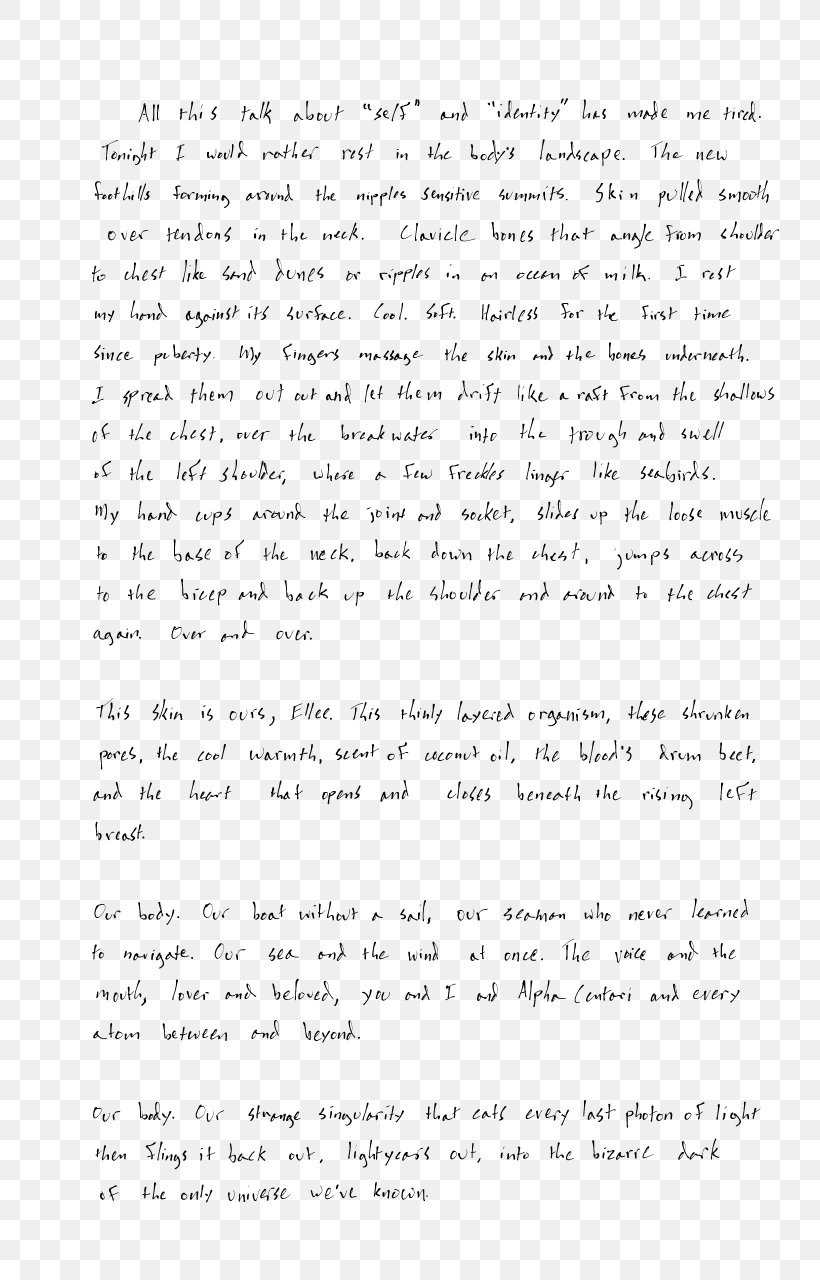 All this talk about "self" and "identity" has made me tired.
Tonight I would rather rest in the body's landscape. The new
foothills forming around the nipples sensitive summits. Skin pulled smooth
over tendons in the neck. Clavicle bones that angle from shoulder
to chest like sand dunes or ripples in an ocean of milk. I rest
my hand against its surface. Cool. Soft. Hairless for the first time
since puberty. My fingers massage the skin and the bones underneath.
I spread them out out and let them drift like a raft from the shallows
of the chest, over the breakwater into the trough and swell
of the left shoulder, where a few freckles linger like seabirds.
My hand cups around the joint and socket, slides up the loose muscle
to the base of the neck, back down the chest, jumps across
to the bicep and back up the shoulder and around to the chest
again. Over and over.
This skin is ours, Ellee. This thinly layered organism, these shrunken
pores, the cool warmth, scent of coconut oil, the blood's drum beet,
and the heart that opens and closes beneath the rising left
breast.
Our body. Our boat without a sail, our seaman who never learned
to navigate. Our sea and the wind at once. The voice and the
mouth, lover and beloved, you and I and Alpha Centari and every
atom between and beyond.
Our body. Our strange singularity that eats every last photon of light
then flings it back out, lightyears out, into the bizarre dark
of the only universe we've known.